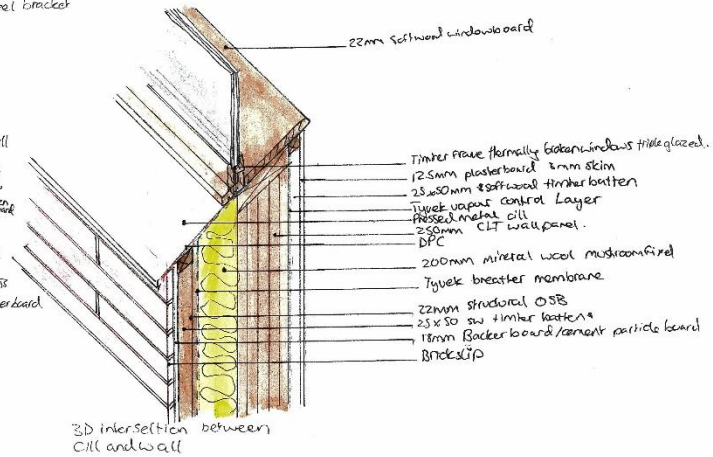 el bracket
22mm softwood windowboard
Timber frame thermally broken windows triple glazed.
12.5mm plasterboard 3mm skim
25x50mm softwood timber batten
Tyvek vapour control Layer
Pressed metal cill
250mm CLT wall panel.
DPC
200mm mineral wool mushroom fixed
Tyvek breather membrane
22mm structural OSB
25x50 sw timber battens
18mm Backer board/cement particle board
Brickslip
3D intersection between
Cill and wall